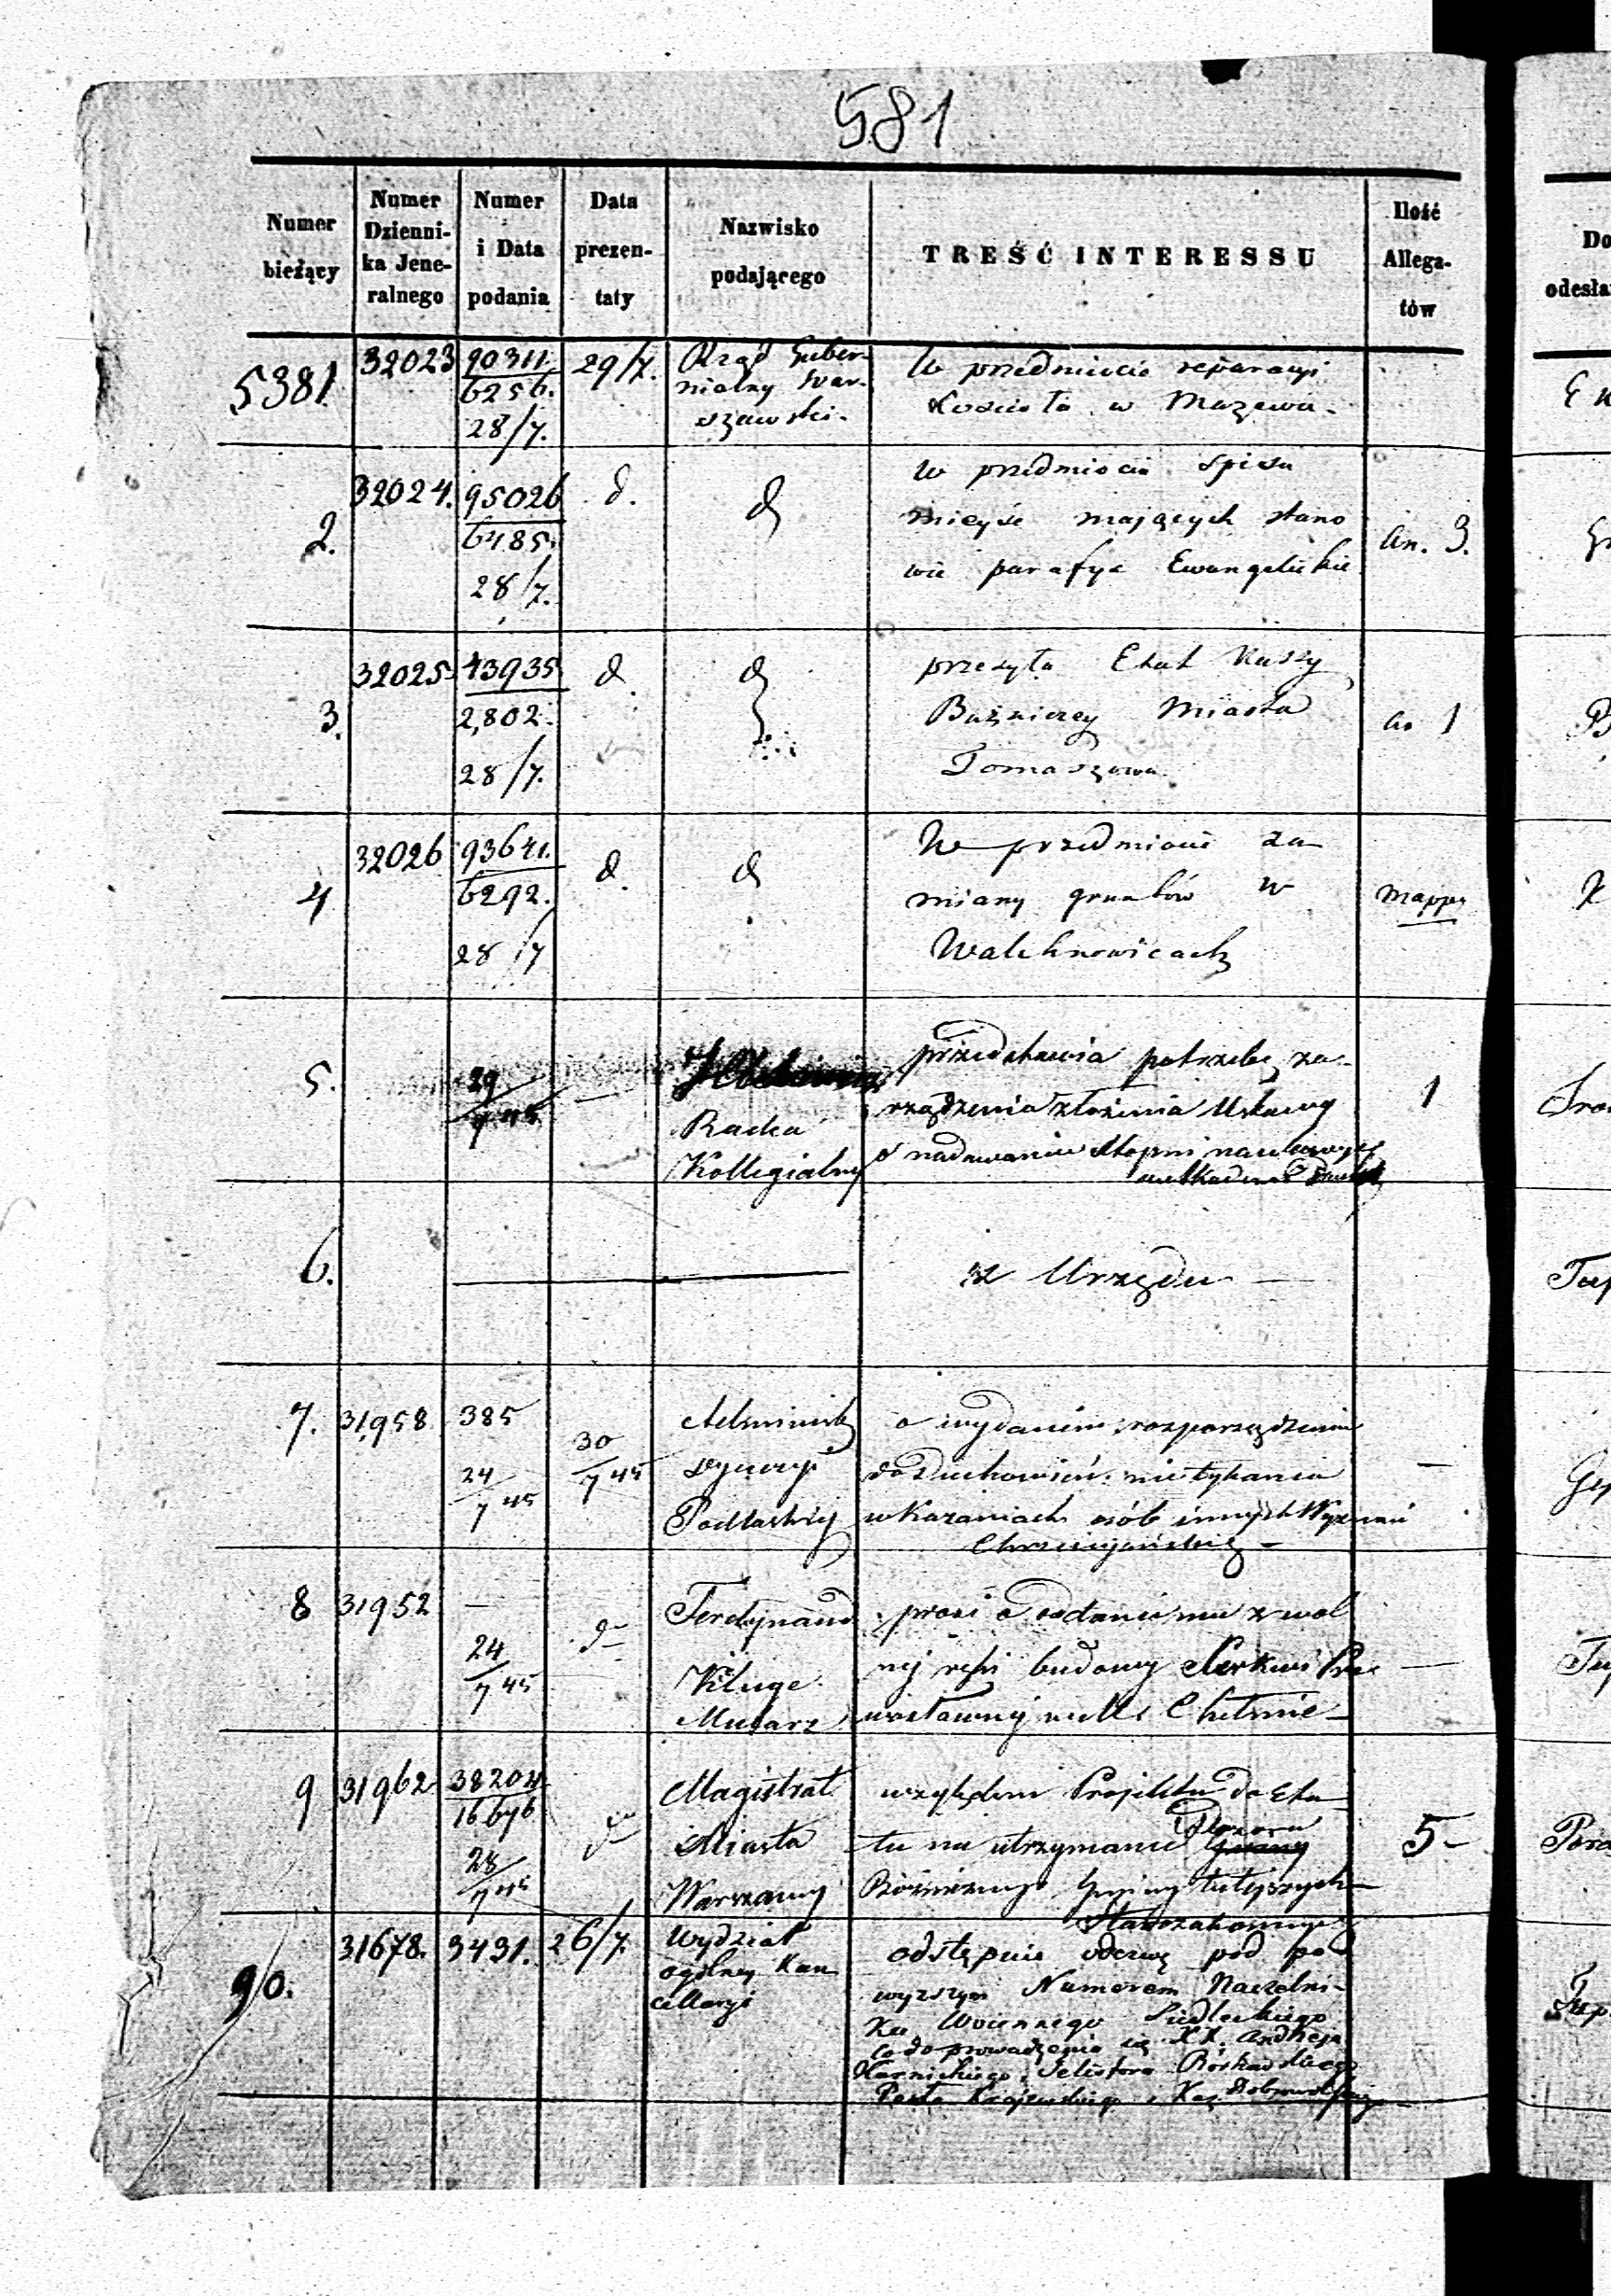 581
Numer bieżący
Numer Dzienni- ka Jene- ralnego
Numer i Data podania
Data prezen- taty
Nazwisko podającego
TREŚĆ INTERESSU
Ilość Allega- tów
Do
odesła
5381
32023
90311
6256.
28/7.
29/7.
Rząd Guber-
nialny War-
szawski.
W przedmiocie reparacyi
Kościoła w Mazewie.
2.
32024.
95026
6485.
28/7.
d.
d
W przedmiocie Spisu
mieysc mających stano
wić parafye Ewangelickie
an. 3.
3.
32025
43935
2,802.
28/7.
d.
d
przesyła Etat Kassy
Bużniczey Miasta
Tomaszowa
an 1
4
32026
93641.
6292.
28/7
d.
d
W przedmiocie za
miany gruntów w
Walichnowicach
mappy
5.
29/7 45
—
Radca
Kollegialny
przedstawia potrzebę za-
rządzenia złożenia Ustawy
o nadawaniu Stopni naukowych
1
6.
z Urzędu
7.
31,958
385
24/7 45
30/7 45
Administ
Dyecezyi
Podlaskiej
o wydaniu rozporządzenia
do Duchowień. nietykania
w Kazaniach osób innych Wyznań
Chrześcijańskich
—
8
31952
—
24/7 45
d
Ferdynand
Kluge
Mularz
prosi o oddanie mu z wol
nej ręki budowy Cerkwi Pra
wosławnej w M. Chełmie
—
9
31962
38204
16676
28/7 45
d
Magistrat
Miasta
Warszawy
względem Projektu do Eta
tu na utrzymanie Dozoru
Bóżniczego Gminy tutejszych
Starozakonnych
5
90.
31678.
3431.
26/7.
Wydział
ogólny Kan
cellaryi
odstępuie odezwę pod po
wyższym Numerem Naczelni-
ka Woiennego Siedleckiego
co do prowadzenia się XX. Andrzeja
Karnickiego,
Pawła Krajewskiego i Kaz. Dobrowolskiego